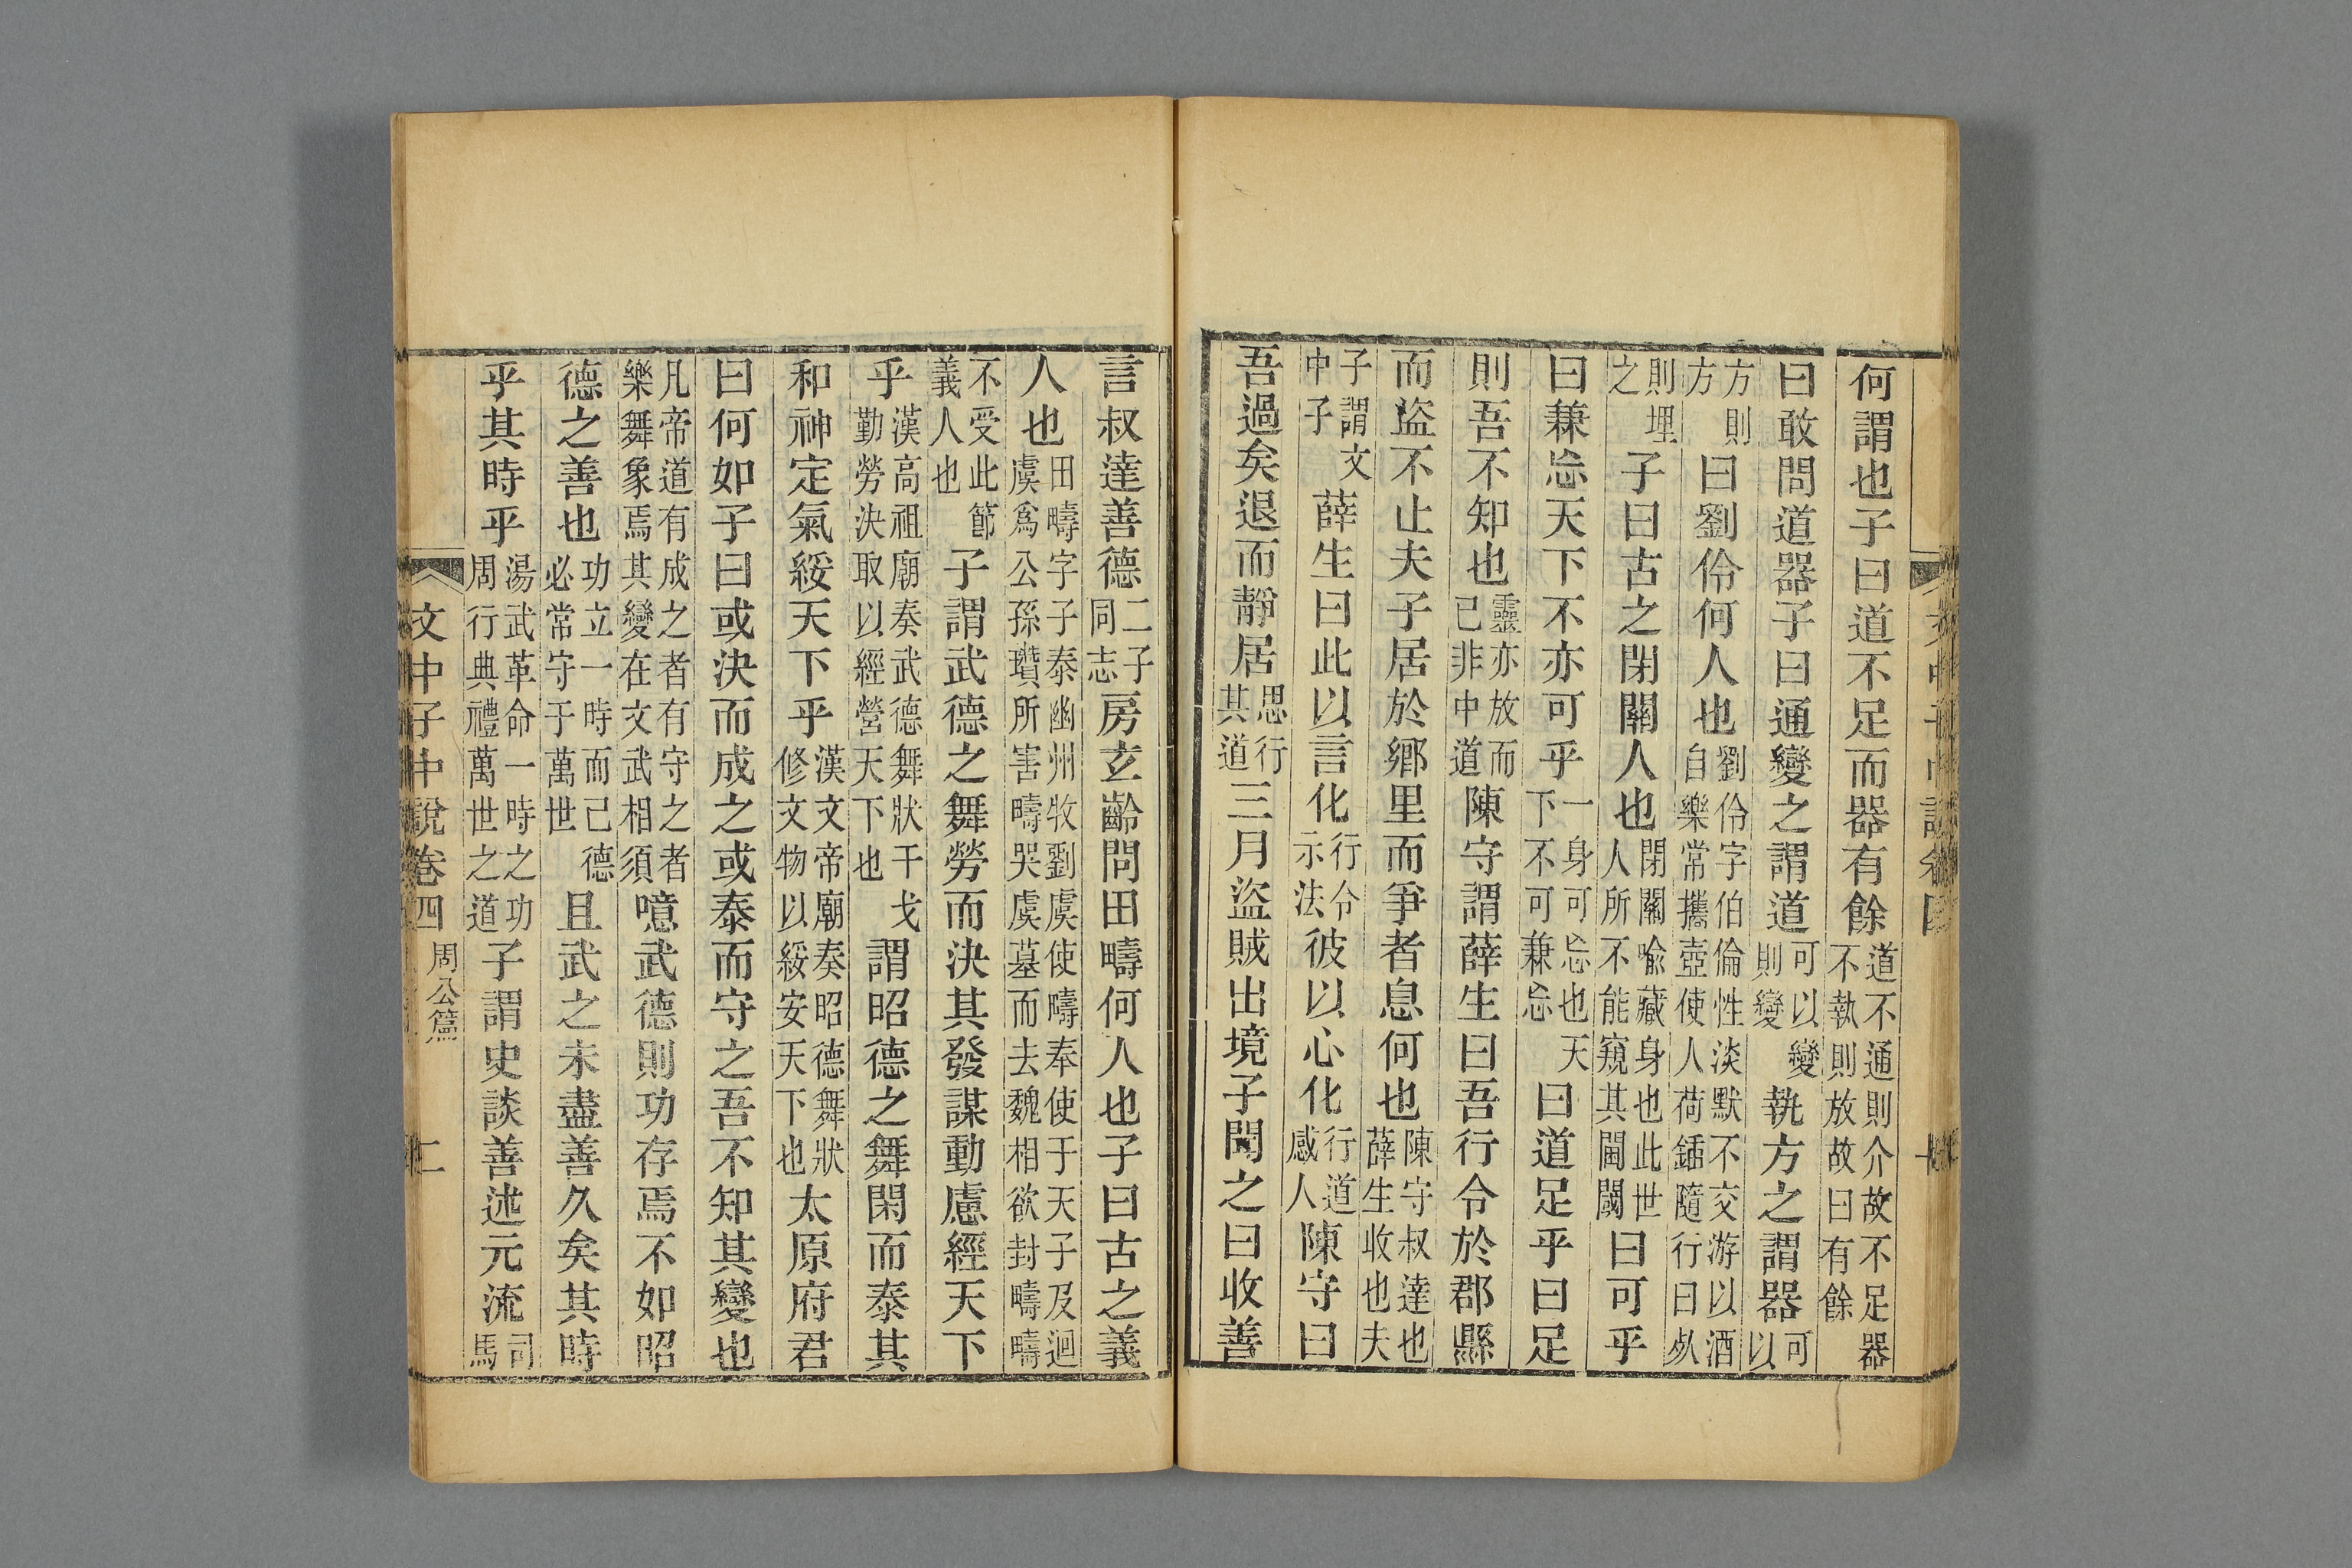 何謂也子曰道不足而器有餘道不通則介故不足器不執則放故曰有餘
曰敢問道器子曰通變之謂道可以變則變執方之謂器可以
方則方曰劉伶何人也劉伶字伯倫性淡默不交游以酒自樂常攜壺使人荷鍤隨行曰死
則埋之子曰古之閉關人也閉關喻藏身也此世人所不能窺其閫閾曰可乎
曰兼忘天下不亦可乎一身可忘也天下不可兼忘曰道足乎曰足
則吾不知也靈亦放而已非中道陳守謂薛生曰吾行令於郡縣
而盜不止夫子居於鄉里而爭者息何也陳守叔達也薛生收也夫
子謂文中子薛生曰此以言化行令示法彼以心化行道感人陳守曰
吾過矣退而靜居思行其道三月盜賊出境子聞之曰收善
言叔達善德二子同志房玄齡問田疇何人也子曰古之義
人也田疇字子泰幽州牧劉虞使疇奉使于天子及迴虞為公孫瓚所害疇哭虞墓而去魏相欲封疇疇
不受此節義人也子謂武德之舞勞而決其發謀動慮經天下
乎漢高祖廟奏武德舞狀干戈勤勞決取以經營天下也謂昭德之舞閑而泰其
和神定氣綏天下乎漢文帝廟奏昭德舞狀修文物以綏安天下也太原府君
曰何如子曰或決而成之或泰而守之吾不知其變也
凡帝道有成之者有守之者樂舞象焉其變在文武相須噫武德則功存焉不如昭
德之善也功立一時而己德必常守于萬世且武之未盡善久矣其時
乎其時乎湯武革命一時之功周行典禮萬世之道子謂史談善述元流司馬
文中子中說卷四 周公篇